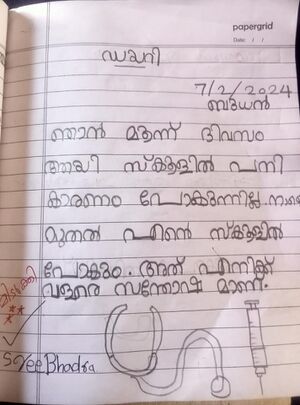 papergrid
Date: / /
ഡയറി
7/2/2024
ബുധൻ
ഞാൻ മൂന്ന് ദിവസം
ആയി സ്കൂളിൽ പനി
കാരണം പോകുന്നില്ല. നാളെ
മുതൽ എന്നെ സ്കൂളിൽ
പോകും. അത് എനിക്ക്
വളരെ സന്തോഷ മാണ്.
Sree Bhadra